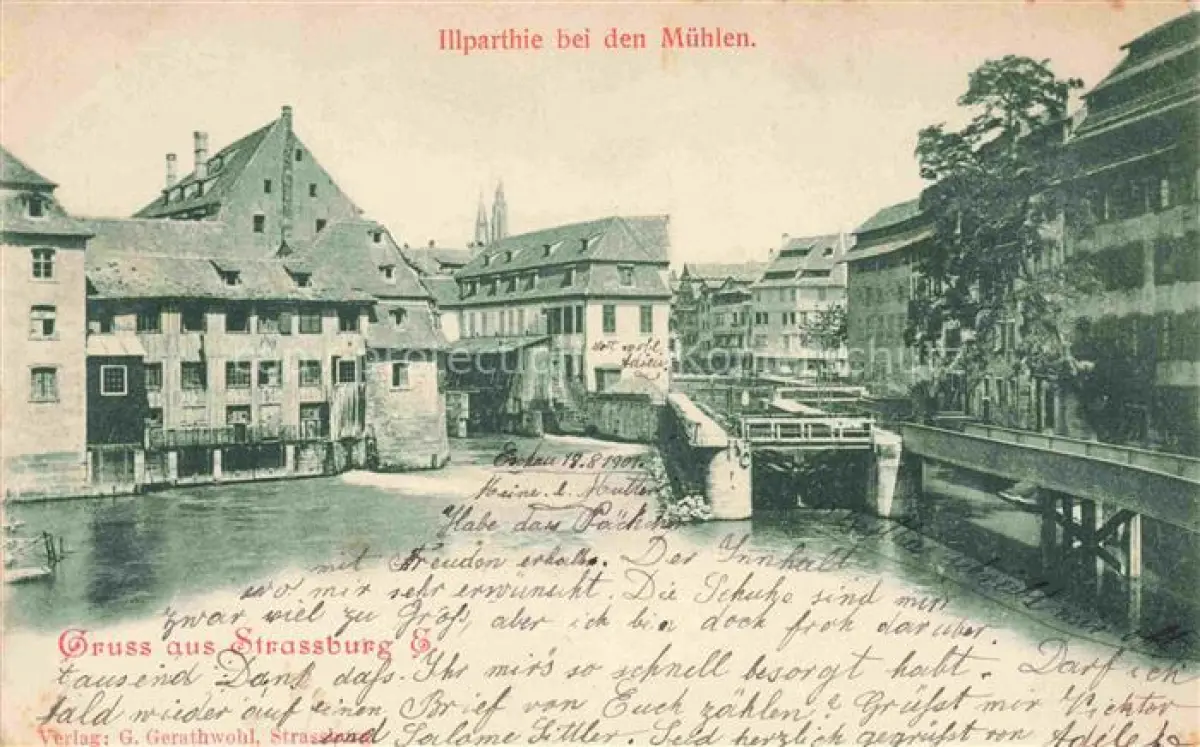 Illparthie bei den Mühlen.
lebt wohl
Adele
Eschau 13.8.1901.
Meine l. Mutter
Habe das Päckchen
mit Freuden erhalten. Der Innhalt
wo mir sehr erwünscht. Die Schuhe sind mir
zwar viel zu Groß, aber ich bin doch froh darüber.
Gruss aus Strassburg E
tausend Dank daß Ihr mir's so schnell besorgt habt. Darf ich
bald wieder auf einen Brief von Euch zählen? Grüßt mir Victor
Verlag: G. Gerathwohl, Strassburg
und Salome Sittler. Seid herzlich gegrüßt von Adele